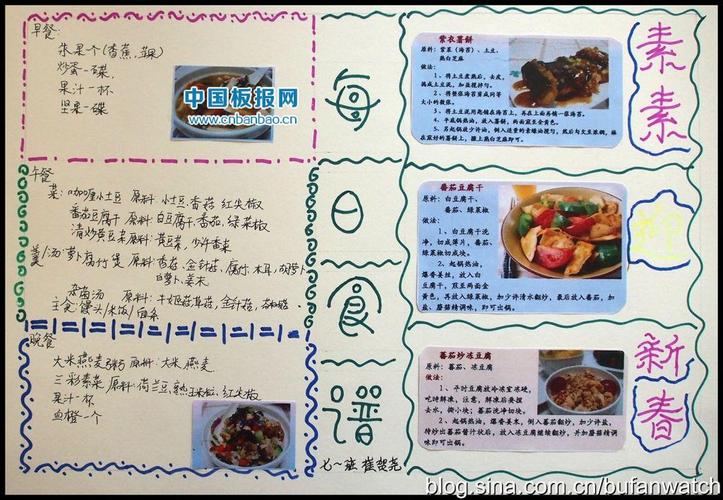 早餐:
水果一个(香蕉,苹果)
炒蛋一碟,
果汁一杯
坚果一碟
中国板报网
www.cnbanbao.cn
午餐
菜: 咖喱小土豆 原料: 小土豆 香菇 红尖椒
番茄豆腐干 原料: 白豆腐干,番茄,绿菜椒
清炒黄豆菜 原料: 黄豆菜,少许香菜
羹/汤: 萝卜腐竹煲 原料: 香菇,金针菇,腐竹,木耳,胡萝卜
白萝卜,姜末
杂菌汤 原料: 牛奶菇 草菇,金针菇,
主食: 馒头/米饭/面条
晚餐
大米燕麦粥 原料: 大米 燕麦
三彩素菜 原料: 荷兰豆,玉米粒,红尖椒
果汁一杯
血橙一个
每
日
食
谱
七一班 崔贺尧
紫衣薯餅
原料:紫菜(海苔)、土豆、
熟白芝麻
做法:
1、将土豆煮熟后,去皮,
捣成土豆泥,加盐搅拌匀。
2、将整张海苔剪成同等
大小的数张。
3、将土豆泥用起铺在海苔上,再在上面再铺一张海苔。
4、平底锅热油,放入薯餅,两面煎至金黄色。
5、另起锅放少许油,倒入适量的素蠔油搅匀,然后勾欠至浓稠,淋
在煎好的薯餅上,撒上熟白芝麻即可。
番茄豆腐干
原料:白豆腐干、
番茄、绿菜椒
做法:
1、白豆腐干洗
净,切成薄片,番茄、
绿菜椒切成块。
2、起锅热油,
爆香姜丝,放入白
豆腐干,煎至两面金
黄色,再放入绿菜椒,加少许清水翻炒,最后放入番茄,加
盐、蘑菇精调味,即可出锅。
番茄炒冻豆腐
原料:番茄、冻豆腐
做法:
1、平时豆腐放冷冻室冰硬,
吃时解冻,注意,解冻后要捏
去水,撕小块;番茄洗净切块。
2、起锅热油,爆香姜末,倒入番茄翻炒,加少许盐,
待炒出番茄酱汁状后,放入冻豆腐继续翻炒,并加蘑菇精调
味即可出锅。
素
素
迎
新
春
blog.sina.com.cn/bufanwatch